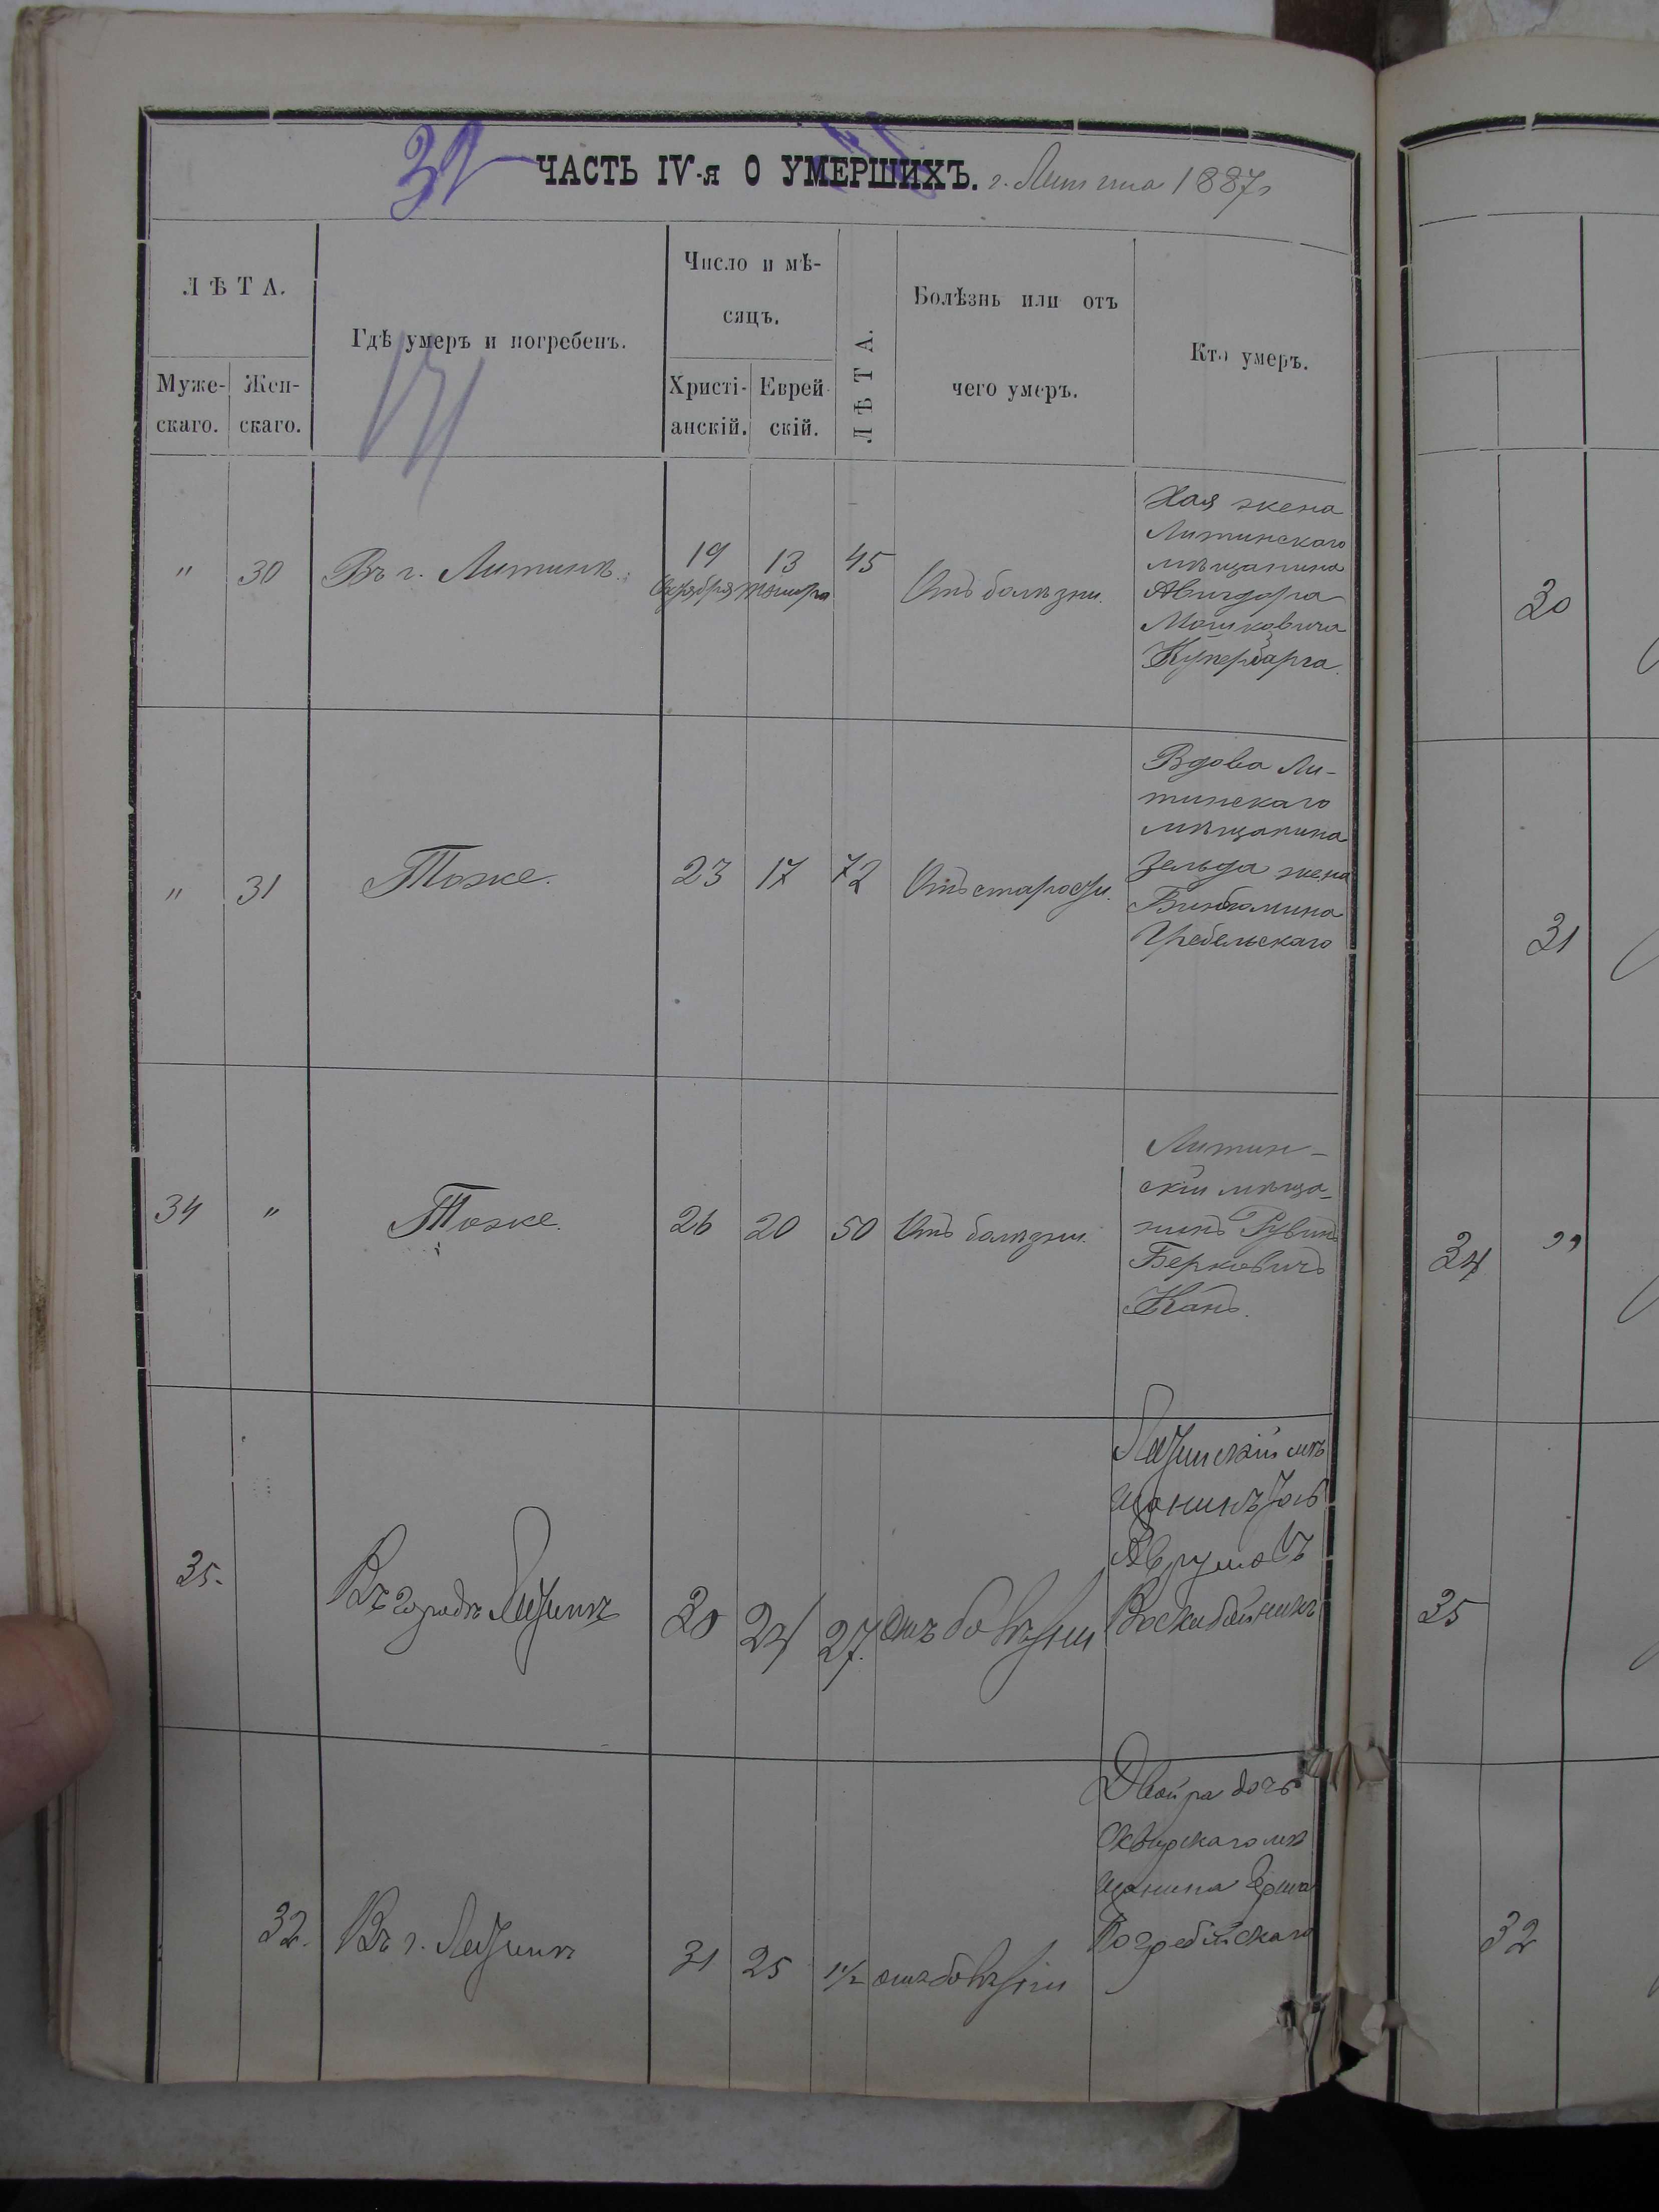 32 ЧАСТЬ IV-я О УМЕРШИХЪ. г. Литина 1887 г
ЛѢТА.
Муже-
скаго.
Жен-
скаго.
Гдѣ умеръ и погребенъ.
Число и мѣ-
сяцъ.
Христі-
анскій.
Еврей
скій.
ЛѢТА.
Болѣзнь или отъ
чего умеръ.
Кто умеръ.
" 30 Въ г. Литинѣ. 19 13 45 Отъ болѣзни.
Октября Тишри
Хая жена
Литинскаго
мѣщанина
Авигдора
Мошковича
" 31 Тоже. 23 17 72 Отъ старости.
Вдова Ли-
тинскаго
мѣщанина
Зельда жена
Гребельскаго
34 " Тоже. 26 20 50 Отъ болѣзни.
Литин-
скій мѣща-
нинъ Рувинъ
Берковичъ
Канъ.
35. Въ городѣ Литинѣ 30 24 27. отъ болѣзни
Литинскій мѣ
щанинъ
Аврумовъ
Воскобойникъ
32. Въ г. Литинѣ 31 25 1½ отъ болѣзни
Двойра дочь
Сквирскаго мѣ
щанина
Погребійскаго
30
31
34 "
35
32